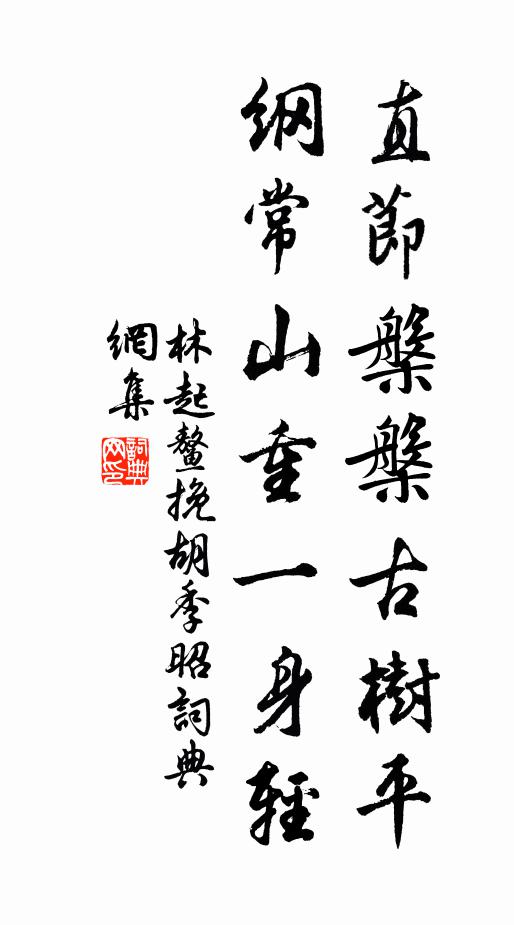 直節槃槃古樹平
綱常山重一身輕
林起鰲挽胡季昭詞典
網集
詞典
网印